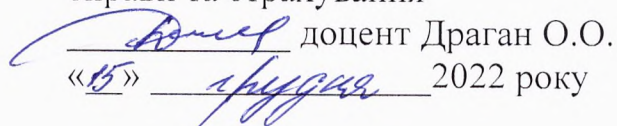 доцент Драган О.О.
«15» грудня 2022 року